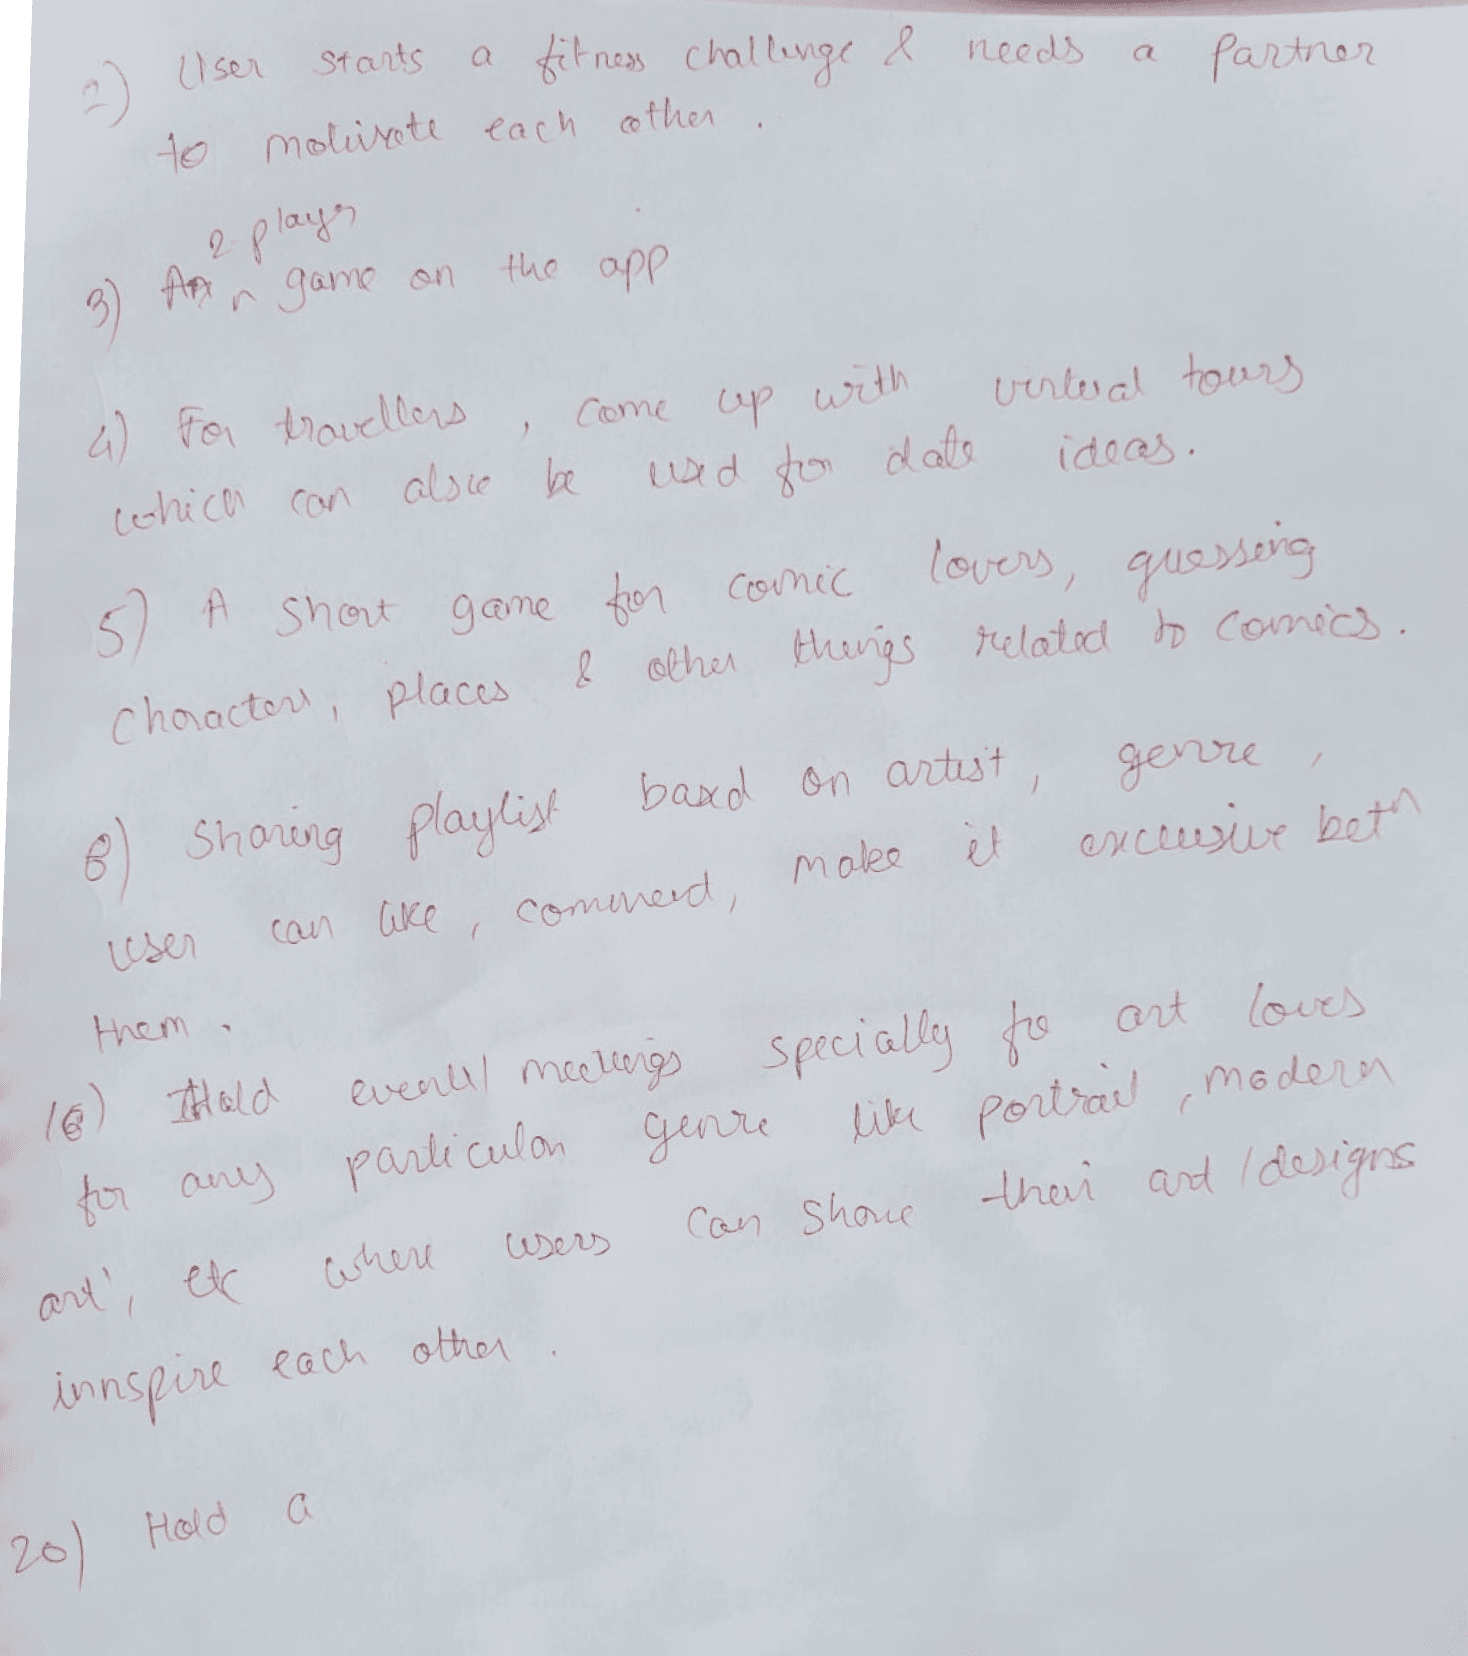 2) User starts a fitness challenge & needs a partner
to motivate each other .
2 player
3) An game on the app
4) For travellers , come up with virtual tours
which can also be used for date ideas .
5) A short game for comic lovers, guessing
characters, places & other things related to comics .
8) Sharing playlist based on artist , genre ,
user can like , commend, make it exclusive betn
them .
16) Hold event/ meetings specially fo art loves
for any particular genre like portrait , modern
art', etc where users can share their art / designs
innspire each other .
20) Hold a